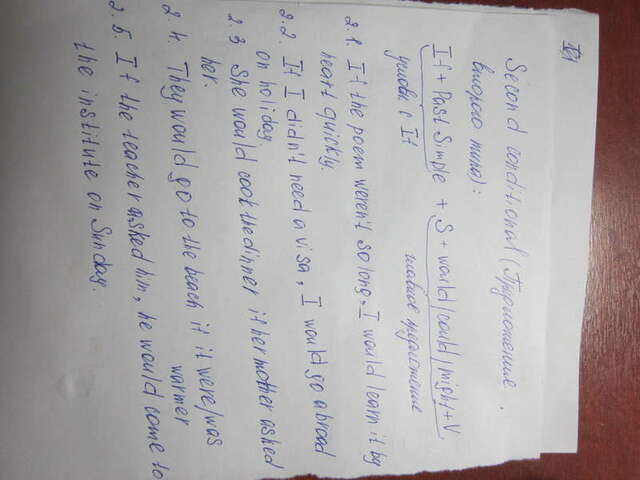 Second conditional (Предложение
второго типа):
If + Past Simple + S + would/could/might + V
условн с If главное предложение
2.1. If the poem weren't so long, I would learn it by
heart quickly.
2.2. If I didn't need a visa, I would go abroad
on holiday.
2.3 She would cook the dinner if her mother asked
her.
2.4. They would go to the beach if it were/was
warmer
2.5. If the teacher asked him, he would come to
the institute on Sunday.